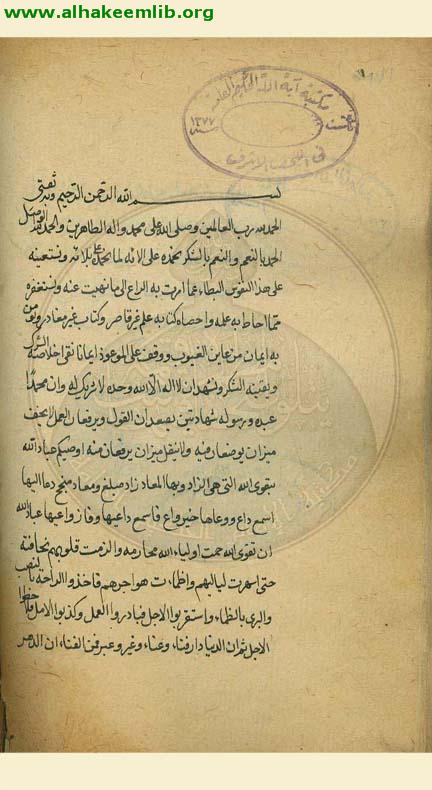 www.alhakeemlib.org
مكتبة آية الله الحكيم العامة
سنة ١٣٧٧
في النجف الاشرف
بسم الله الرحمن الرحيم وبه ثقتي
الحمد لله رب العالمين وصلى الله على محمد واله الطاهرين والحمد لله الواصل
الحمد بالنعم والنعم بالشكر نحمده على الائه كما نحمده على بلائه ونستعينه
على هذا النفوس البطاء عما امرت به السراع الى ما نهيت عنه ونستغفره
مما احاط به علمه واحصاه كتابه علم غير قاصر وكتاب غير مغادر ونؤمن
به ايمان من عاين الغيوب ووقف على الموعود ايمانا نفى اخلاصه الشرك
ويقينه الشك ونشهد ان لا اله الا الله وحده لا شريك له وان محمدا
عبده ورسوله شهادتين يصعدان القول ويرفعان العمل لا يخف
ميزان يوضعان فيه ولا يثقل ميزان يرفعان منه اوصيكم عباد الله
بتقوى الله التي هي الزاد وبها المعاد زاد مبلغ ومعاد منجح دعا اليها
اسمع داع ووعاها خير واع فاسمع داعيها وفاز واعيها عباد الله
ان تقوى الله حمت اولياء الله محارمه والزمت قلوبهم مخافته
حتى اسهرت لياليهم واظمأت هواجرهم فاخذوا الراحة بالنصب
والري بالظماء واستقربوا الاجل فبادروا العمل وكذبوا الامل فلاحظوا
الاجل ثم ان الدنيا دار فناء وعناء وغير وعبر فمن الفناء ان الدهر